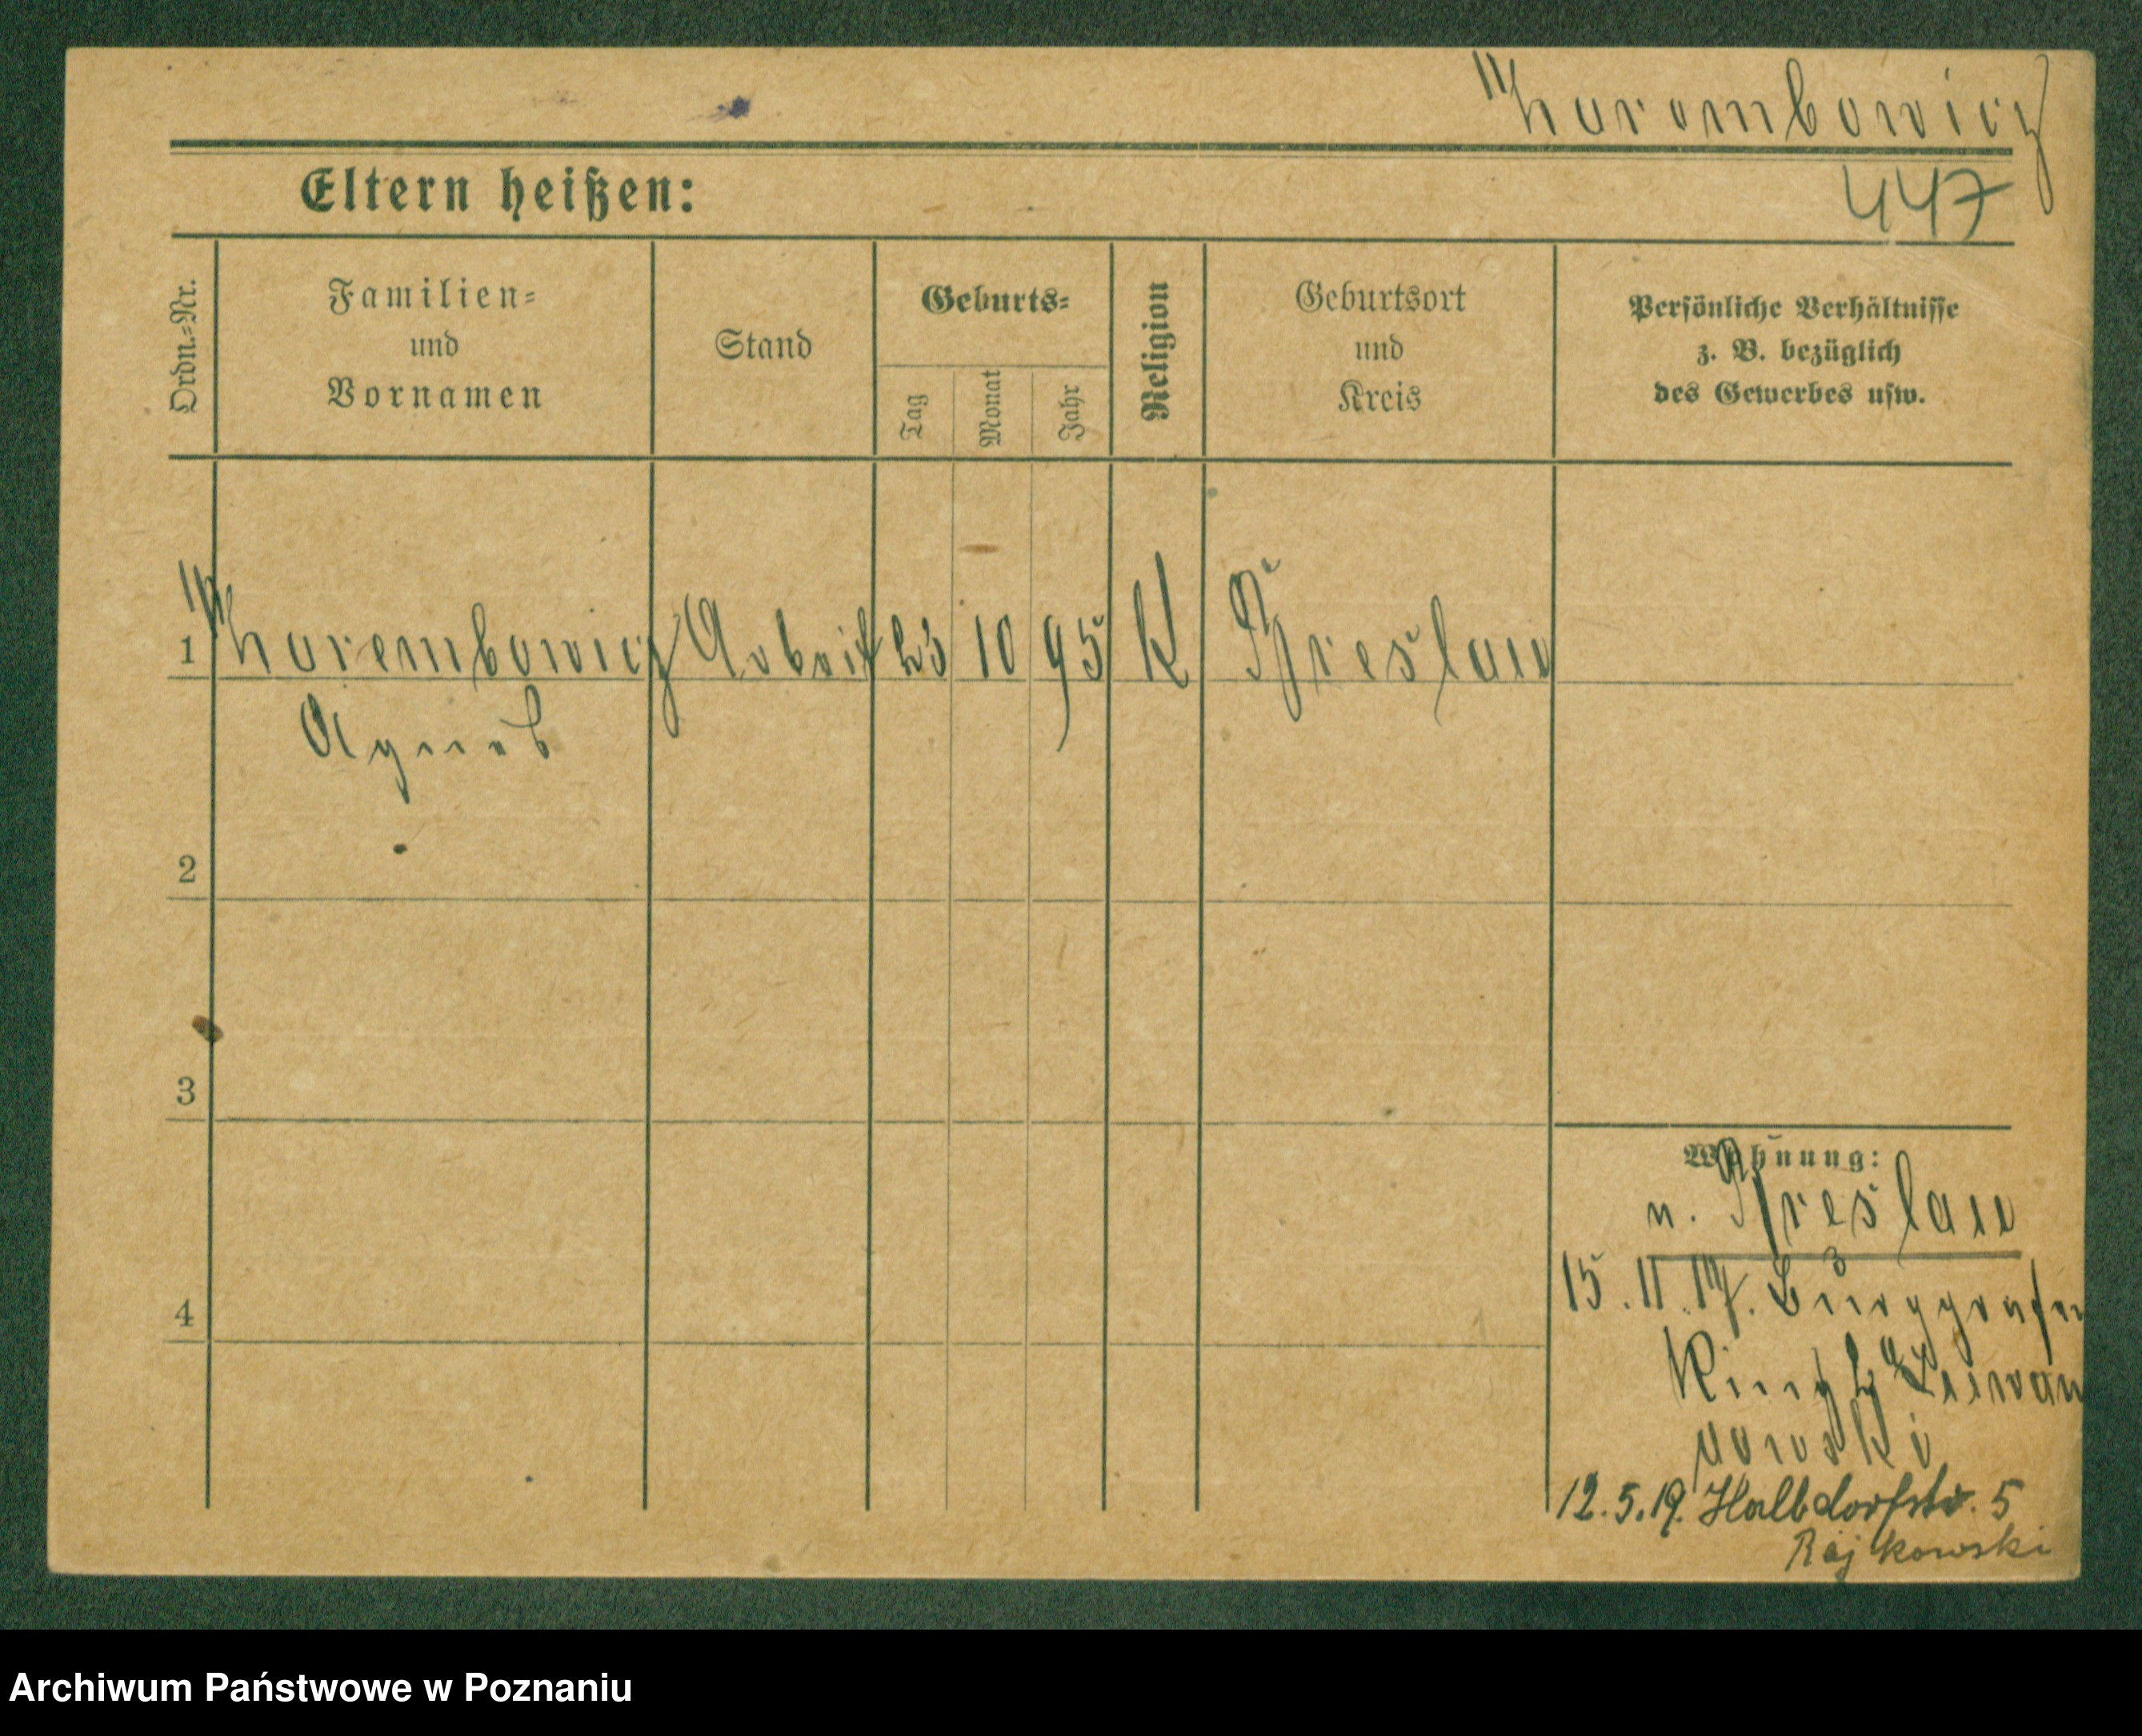 Korembowicz
447
Eltern heißen:
Ordn.=Nr.
Familien=
und
Vornamen
Stand
Geburts=
Tag
Monat
Jahr
Religion
Geburtsort
und
Kreis
Persönliche Verhältnisse
z. B. bezüglich
des Gewerbes usw.
1 Korembowicz Arbeit 23 10 95 K Breslau
Agnes
2
3
4
Wohnung:
n. Breslau
15.11.17. Burggrafen
Ring
dowski
12.5.19. Halbdorfstr. 5
Rajkowski
Archiwum Państwowe w Poznaniu